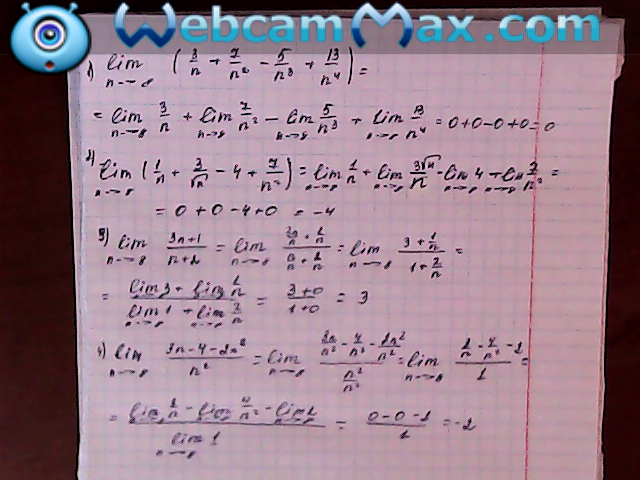 WebcamMax.com
1) lim n→∞ (3/n + 7/n² - 5/n³ + 13/n⁴) =
= lim n→∞ 3/n + lim n→∞ 7/n² - lim n→∞ 5/n³ + lim n→∞ 13/n⁴ = 0+0-0+0=0
2) lim n→∞ (1/n + 3/√n - 4 + 7/n²) = lim n→∞ 1/n + lim n→∞ 3√n/n - lim n→∞ 4 + lim n→∞ 7/n² =
= 0 + 0 - 4 + 0 = -4
3) lim n→∞ (3n+1)/(n+2) = lim n→∞ = lim n→∞ (3 + 1/n)/(1 + 2/n) =
= (lim 3 + lim 1/n)/(lim 1 + lim 2/n) = (3+0)/(1+0) = 3
4) lim n→∞ (3n-4-2n²)/n² = lim n→∞ (3n/n² - 4/n² - 2n²/n²)/(n²/n²) = lim n→∞ (3/n - 4/n² - 2)/1 =
= (lim 3/n - lim 4/n² - lim 2)/(lim n→∞ 1) = (0-0-2)/1 = -2